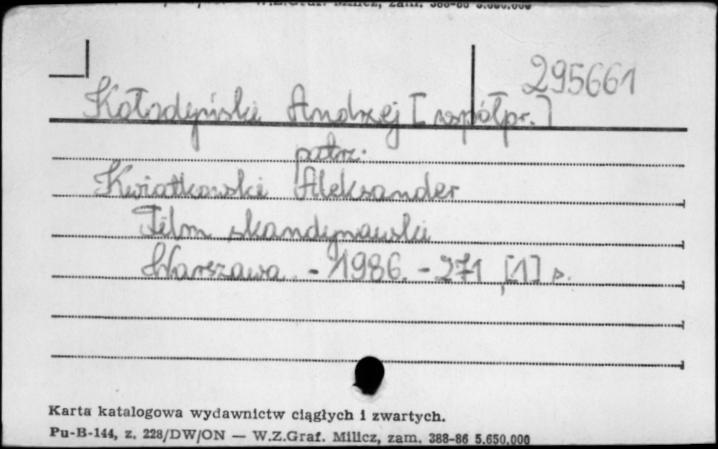 W.Z.Graf. Milicz, zam. 388-86 5.650.000
295661
Kołodyński Andrzej [współpr.]
patrz.
Kwiatkowski Aleksander
Film skandynawski
Warszawa. - 1986. - 271, [1] s.
Karta katalogowa wydawnictw ciągłych i zwartych.
Pu-B-144, z. 228/DW/ON — W.Z.Graf. Milicz, zam. 388-86 5.650.000